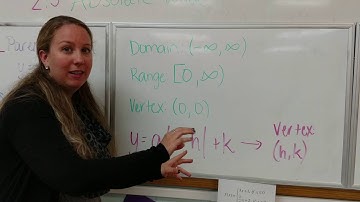 2.5 Absolute
Domain: (-∞, ∞)
Range [0, ∞)
Vertex (0,0)
y = a h| + k → Vertex
(h, k)